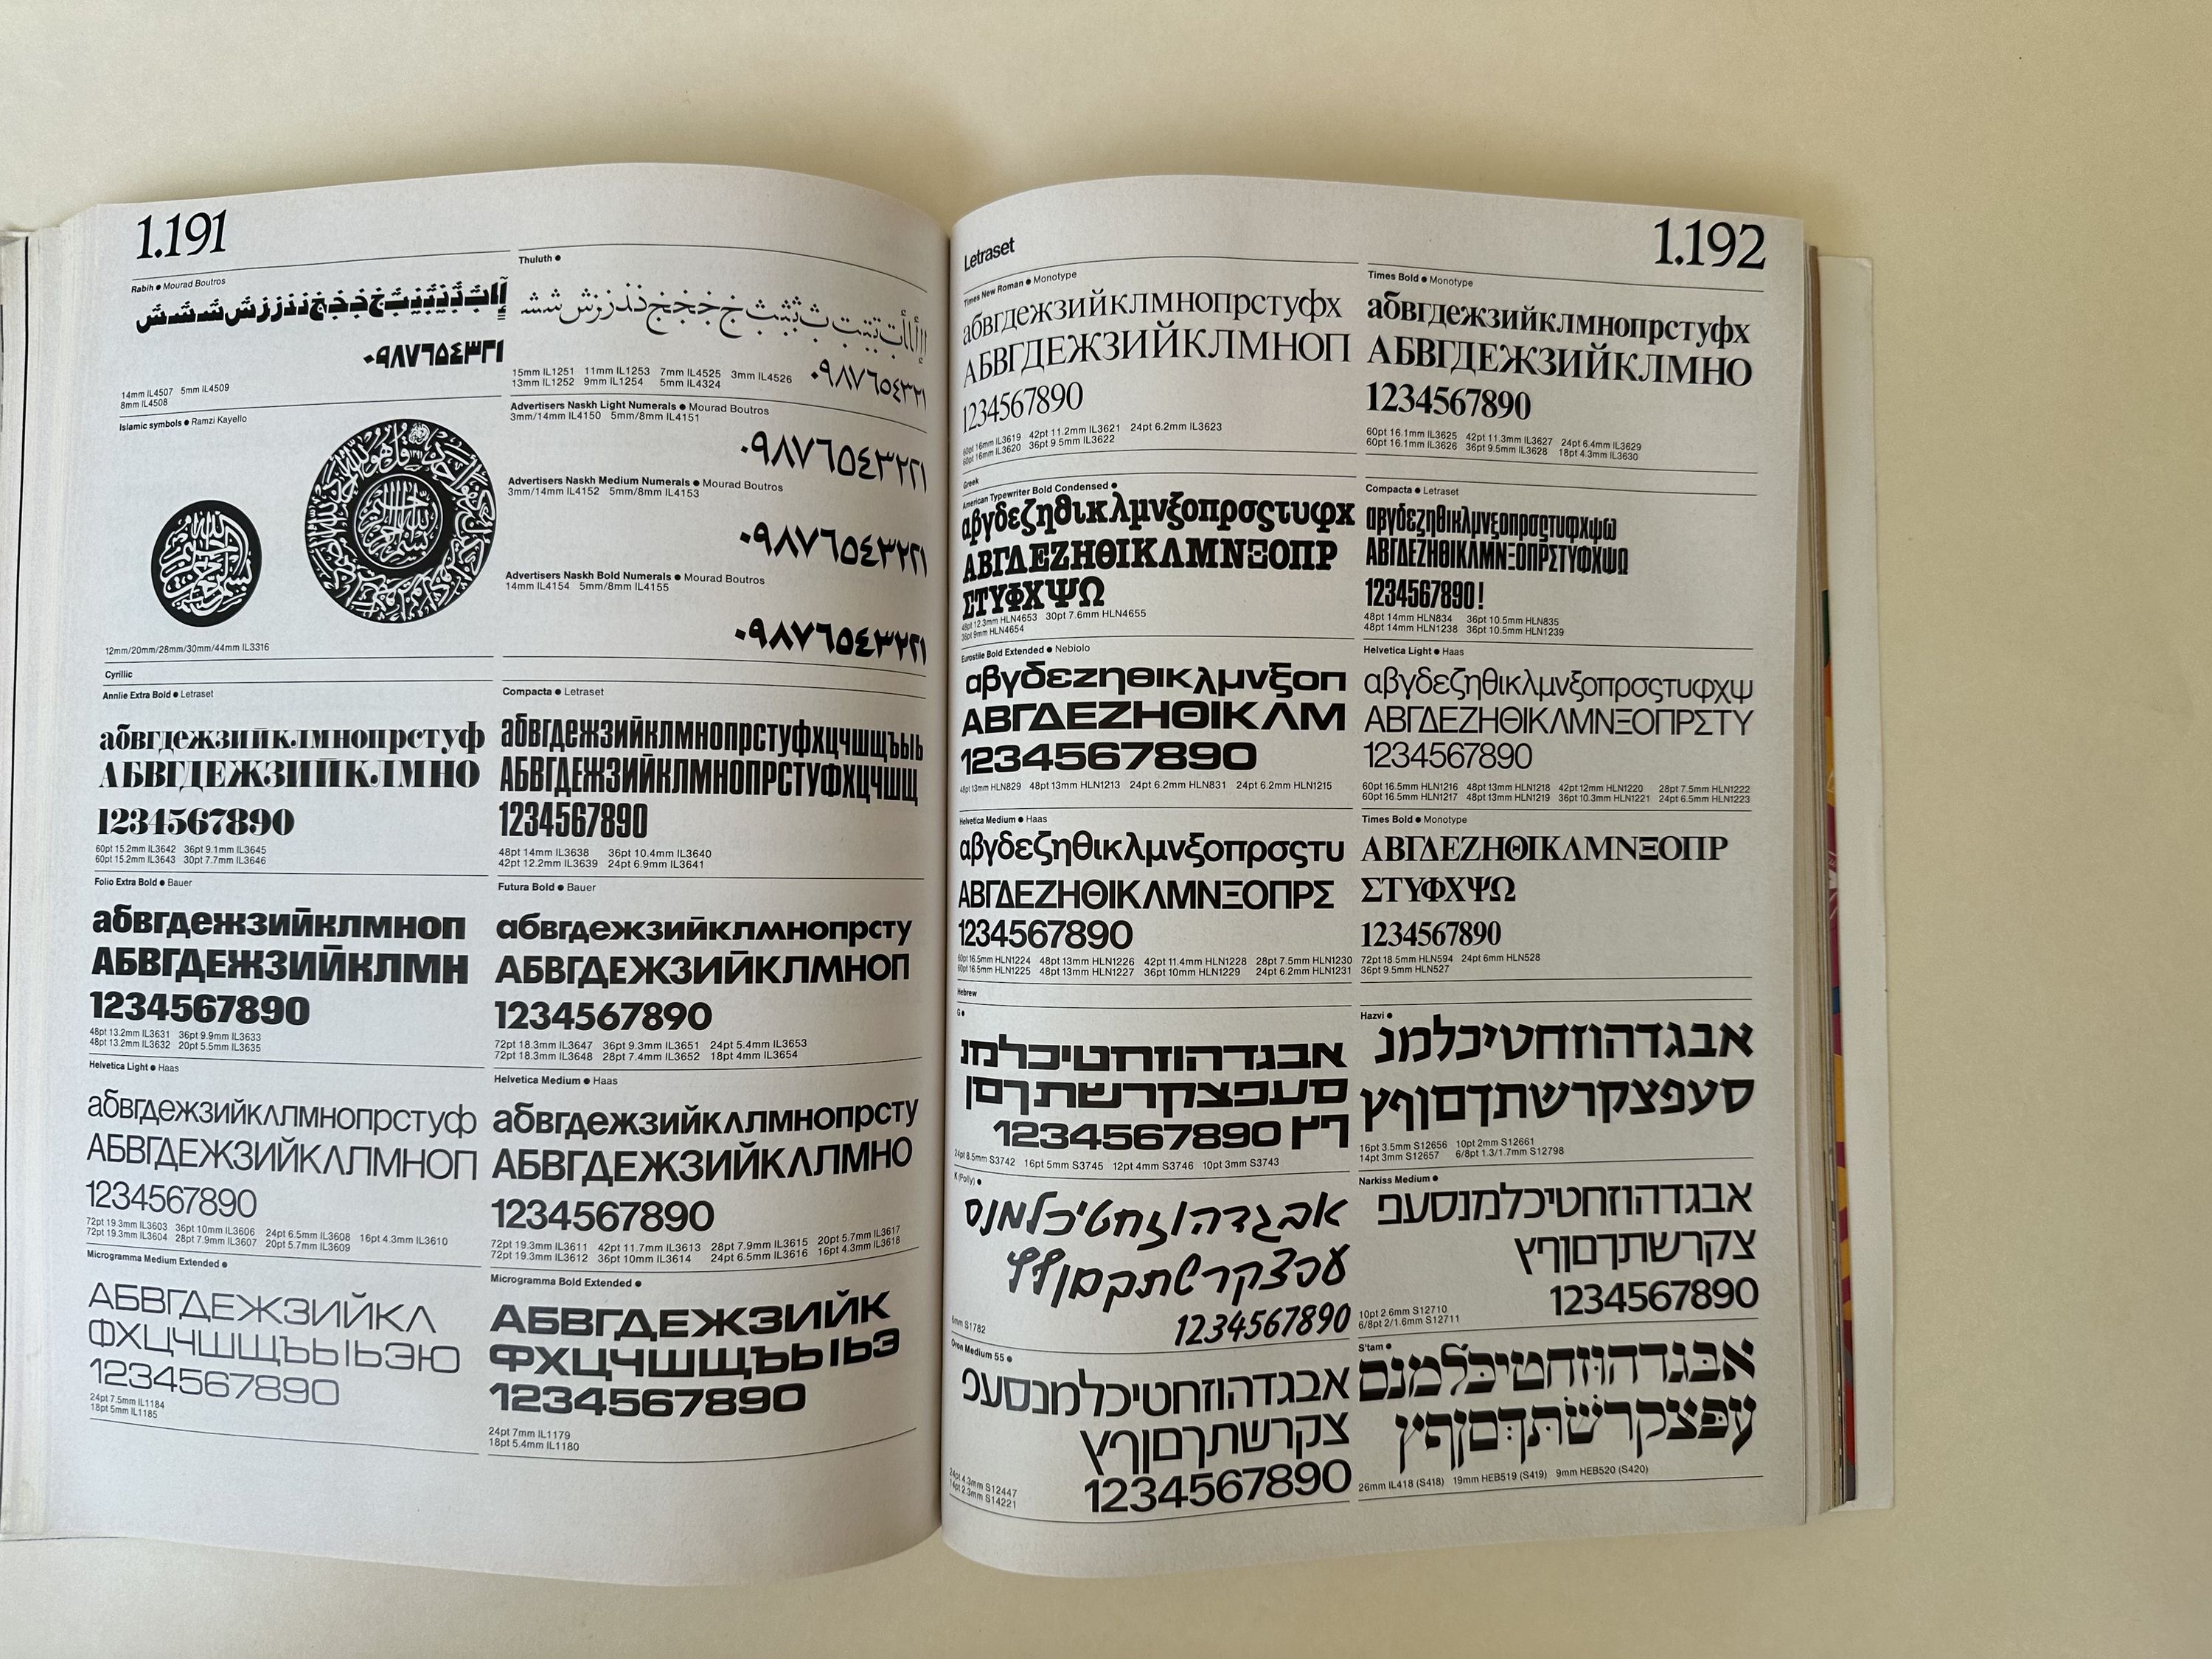 1.191
Rabih ● Mourad Boutros
٠٩٨٧٦٥٤٣٢١
14mm IL4507 5mm IL4509
8mm IL4508
Islamic symbols ● Ramzi Kayello
12mm/20mm/28mm/30mm/44mm IL3316
Thuluth ●
٠٩٨٧٦٥٤٣٢١
15mm IL1251 11mm IL1253 7mm IL4525 3mm IL4526
13mm IL1252 9mm IL1254 5mm IL4324
Advertisers Naskh Light Numerals ● Mourad Boutros
3mm/14mm IL4150 5mm/8mm IL4151
Advertisers Naskh Medium Numerals ● Mourad Boutros
3mm/14mm IL4152 5mm/8mm IL4153
Advertisers Naskh Bold Numerals ● Mourad Boutros
14mm IL4154 5mm/8mm IL4155
Cyrillic
Annlie Extra Bold ● Letraset
абвгдежзийклмнопрстуф
АБВГДЕЖЗИЙКЛМНО
1234567890
60pt 15.2mm IL3642 36pt 9.1mm IL3645
60pt 15.2mm IL3643 30pt 7.7mm IL3646
Compacta ● Letraset
абвгдежзийклмнопрстуфхцчшщъыь
АБВГДЕЖЗИЙКЛМНОПРСТУФХЦЧШЩ
1234567890
48pt 14mm IL3638 36pt 10.4mm IL3640
42pt 12.2mm IL3639 24pt 6.9mm IL3641
Folio Extra Bold ● Bauer
абвгдежзийклмноп
АБВГДЕЖЗИЙКЛМН
1234567890
48pt 13.2mm IL3631 36pt 9.9mm IL3633
48pt 13.2mm IL3632 20pt 5.5mm IL3635
Futura Bold ● Bauer
абвгдежзийклмнопрсту
АБВГДЕЖЗИЙКЛМНОП
1234567890
72pt 18.3mm IL3647 36pt 9.3mm IL3651 24pt 5.4mm IL3653
72pt 18.3mm IL3648 28pt 7.4mm IL3652 18pt 4mm IL3654
Helvetica Light ● Haas
абвгдежзийкΛлмнопрстуф
АБВГДЕЖЗИЙКΛЛМНОП
1234567890
72pt 19.3mm IL3603 36pt 10mm IL3606 24pt 6.5mm IL3608 16pt 4.3mm IL3610
72pt 19.3mm IL3604 28pt 7.9mm IL3607 20pt 5.7mm IL3609
Helvetica Medium ● Haas
абвгдежзийкΛлмнопрсту
АБВГДЕЖЗИЙКΛЛМНО
1234567890
72pt 19.3mm IL3611 42pt 11.7mm IL3613 28pt 7.9mm IL3615 20pt 5.7mm IL3617
72pt 19.3mm IL3612 36pt 10mm IL3614 24pt 6.5mm IL3616 16pt 4.3mm IL3618
Microgramma Medium Extended ●
АБВГДЕЖЗИЙКΛ
ФХЦЧШЩЪЬІЬЭЮ
1234567890
24pt 7.5mm IL1184
18pt 5mm IL1185
Microgramma Bold Extended ●
АБВГДЕЖЗИЙК
ФХЦЧШЩЪЬІЬЭ
1234567890
24pt 7mm IL1179
18pt 5.4mm IL1180
Letraset
1.192
Times New Roman ● Monotype
абвгдежзийклмнопрстуфх
АБВГДЕЖЗИЙКЛМНОП
1234567890
60pt 16mm IL3619 42pt 11.2mm IL3621 24pt 6.2mm IL3623
60pt 16mm IL3620 36pt 9.5mm IL3622
Times Bold ● Monotype
абвгдежзийклмнопрстуфх
АБВГДЕЖЗИЙКЛМНО
1234567890
60pt 16.1mm IL3625 42pt 11.3mm IL3627 24pt 6.4mm IL3629
60pt 16.1mm IL3626 36pt 9.5mm IL3628 18pt 4.3mm IL3630
Greek
American Typewriter Bold Condensed ●
αβγδεζηθικλμνξοπρσςτυφχ
ΑΒΓΔΕΖΗΘΙΚΛΜΝΞΟΠΡ
ΣΤΥΦΧΨΩ
48pt 12.3mm HLN4653 30pt 7.6mm HLN4655
36pt 9mm HLN4654
Compacta ● Letraset
αβγδεζηθικλμνξοπρσςτυφχψω
ΑΒΓΔΕΖΗΘΙΚΛΜΝΞΟΠΡΣΤΥΦΧΨΩ
1234567890!
48pt 14mm HLN834 36pt 10.5mm HLN835
48pt 14mm HLN1238 36pt 10.5mm HLN1239
Eurostile Bold Extended ● Nebiolo
αβγδεζηθικλμνξοπ
ΑΒΓΔΕΖΗΘΙΚΛΜ
1234567890
48pt 13mm HLN829 48pt 13mm HLN1213 24pt 6.2mm HLN831 24pt 6.2mm HLN1215
Helvetica Light ● Haas
αβγδεζηθικλμνξοπρσςτυφχψ
ΑΒΓΔΕΖΗΘΙΚΛΜΝΞΟΠΡΣΤΥ
1234567890
60pt 16.5mm HLN1216 48pt 13mm HLN1218 42pt 12mm HLN1220 28pt 7.5mm HLN1222
60pt 16.5mm HLN1217 48pt 13mm HLN1219 36pt 10.3mm HLN1221 24pt 6.5mm HLN1223
Helvetica Medium ● Haas
αβγδεζηθικλμνξοπρσςτυ
ΑΒΓΔΕΖΗΘΙΚΛΜΝΞΟΠΡΣ
1234567890
60pt 16.5mm HLN1224 48pt 13mm HLN1226 42pt 11.4mm HLN1228 28pt 7.5mm HLN1230
60pt 16.5mm HLN1225 48pt 13mm HLN1227 36pt 10mm HLN1229 24pt 6.2mm HLN1231
Times Bold ● Monotype
ΑΒΓΔΕΖΗΘΙΚΛΜΝΞΟΠΡ
ΣΤΥΦΧΨΩ
1234567890
72pt 18.5mm HLN594 24pt 6mm HLN528
36pt 9.5mm HLN527
Hebrew
G ●
אבגדהוזחטיכלמנ
סעפצקרשתךםן
ףץ 1234567890
24pt 8.5mm S3742 16pt 5mm S3745 12pt 4mm S3746 10pt 3mm S3743
Hazvi ●
אבגדהוזחטיכלמנ
סעפצקרשתךםןףץ
16pt 3.5mm S12656 10pt 2mm S12661
14pt 3mm S12657 6/8pt 1.3/1.7mm S12798
K (Folly) ●
אבגדהוזחטיכלמנס
עפצקרשתךםןףץ
1234567890
6mm S1782
Narkiss Medium ●
אבגדהוזחטיכלמנסעפ
צקרשתךםןףץ
1234567890
10pt 2.6mm S12710
6/8pt 2/1.6mm S12711
Oron Medium 55 ●
אבגדהוזחטיכלמנסעפ
צקרשתךםןףץ
1234567890
24pt 4.3mm S12447
14pt 2.3mm S14221
S'tam ●
אבגדהוזחטיכלמנס
עפצקרשתךםןףץ
26mm IL418 (S418) 19mm HEB519 (S419) 9mm HEB520 (S420)